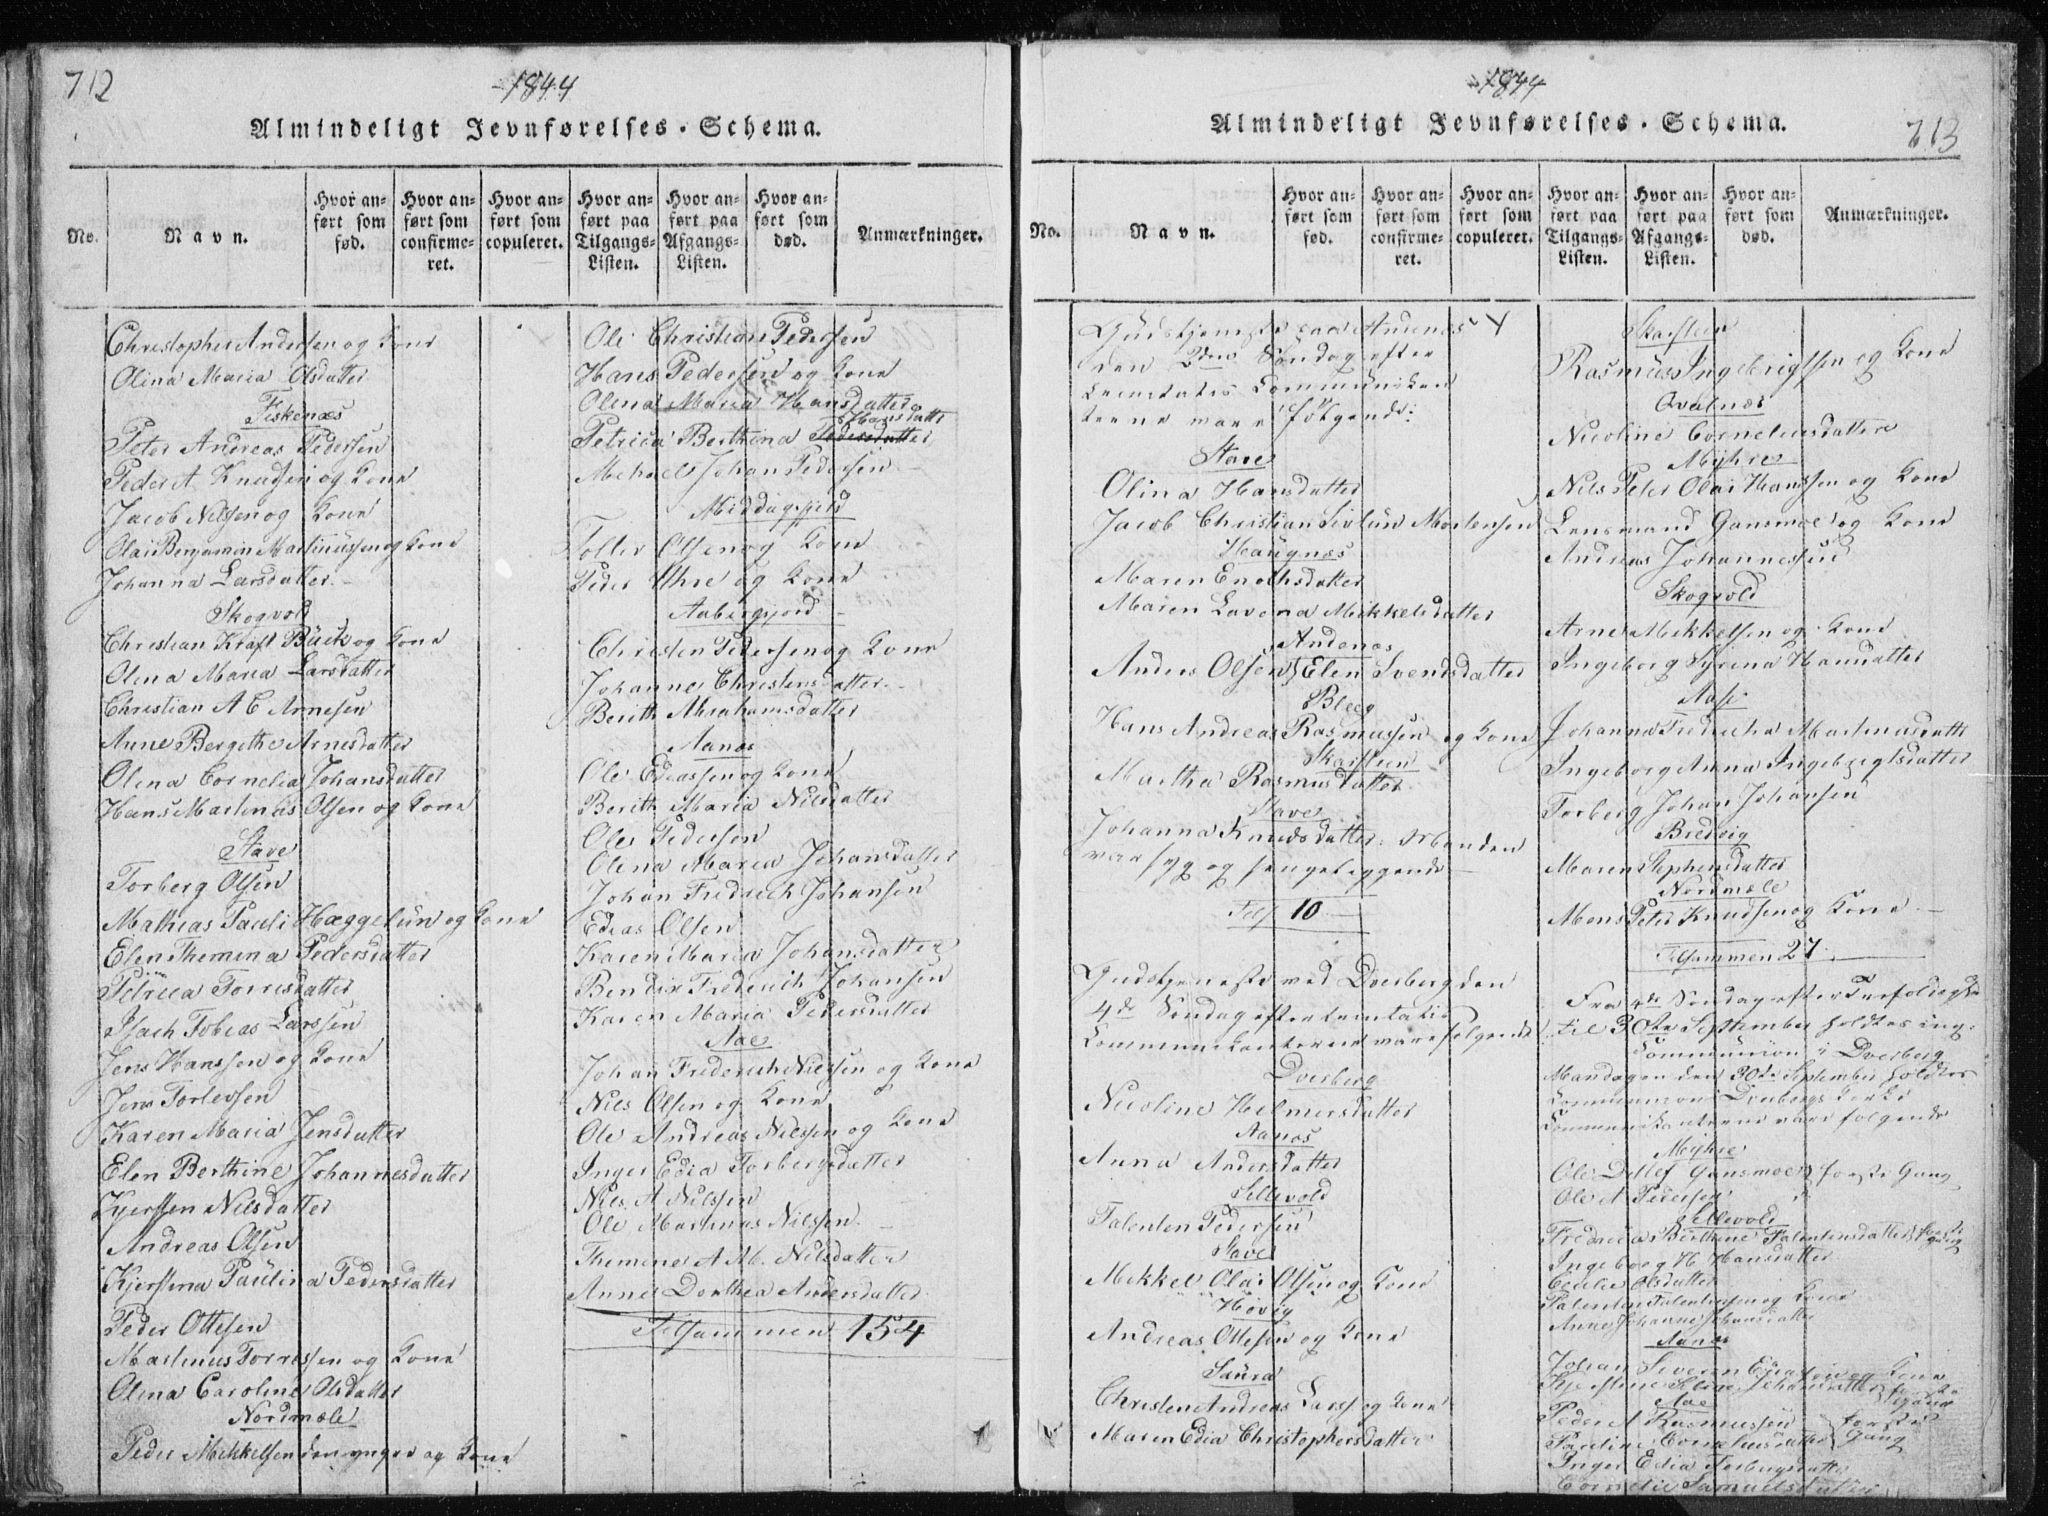 712
1844
Almindeligt Jevnførelses-Schema.
No.
Navn.
Hvor anført som fød.
Hvor anført som confirmeret.
Hvor anført som copuleret.
Hvor anført paa Tilgangs-Listen.
Hvor anført paa Afgangs-Listen.
Hvor anført som død.
Anmærkninger.
Christopher Andersen og Kone
Olina Maria Olsdatter
Fiskenæs
Peter Andreas Pedersen
Peder A. Knudsen og Kone
Jacob Nilsen og Kone
Olai Benjamin Martinussen og Kone
Johanna Larsdatter
Skogvold
Christian Kraft Bück og Kone
Olena Maria Larsdatter
Christian A C Arnesen
Anne Bergethe Arnesdatter
Olena Cornelia Johansdatter
Hans Martinas Olsen og Kone
Stave
Torberg Olsen
Mathias Pauli Hæggelun og Kone
Elen Themina Pedersdatter
Petrica Torresdatter
Isach Tobias Larssen
Jens Hanssen og Kone
Jens Torlevsen
Karen Maria Jensdatter
Elen Berthine Johannesdatter
Kjersten Nilsdatter
Andreas Olsen
Kjerstina Paulina Pedersdatter
Peder Ottesen
Martinus Torressen og Kone
Olena Caroline Olsdatter
Nordmæle
Peder Mikkelsen den yngre og Kone
Ole Christian Pedersen
Hans Pedersen og Kone
Olena Maria Hansdatter
Hansdatter
Petrica Berthina Pedersdatter
Mikael Johan Pedersen
Middagsfjeld
Toller Olsen og Kone
Peder Uhre og Kone
Aabergsjord
Christen Pedersen og Kone
Johanne Christensdatter
Berith Abrahamsdatter
Aanæs
Ole Ediassen og Kone
Berith Maria Nilsdatter
Ole Pedersen
Olena Maria Johansdatter
Johan Fredrich Johansen
Edias Olsen
Karen Maria Johansdatter
Bendix Frederich Johansen
Karen Maria Pedersdatter
Aae
Johan Frederich Nielsen og Kone
Nils Olsen og Kone
Ole Andreas Nilssen og Kone
Inger Edia Torbergsdatter
Nils A Nilssen
Ole Martinas Nilssen
Themine A. M. Nilsdatter
Anne Dorthea Andersdatter
Tilsammen 154
1844
Almindeligt Jevnførelses-Schema.
713
No.
Navn.
Hvor anført som fød.
Hvor anført som confirmeret.
Hvor anført som copuleret.
Hvor anført paa Tilgangs-Listen.
Hvor anført paa Afgangs-Listen.
Hvor anført som død.
Anmærkninger.
Gudstjeneste paa Andenæs
den 2den Söndag efter
Trinitatis Communikan
terne vare følgende:
Stave
Olina Hansdatter
Jacob Christian Sivlun Mortensen
Haugnæs
Maren Enochsdatter
Maren Lavena Mikkelsdatter
Andenæs
Anders Olsen, Elen Svendsdatter
Bleeg
Hans Andreas Rasmussen og Kone
Skarsteen
Martha Rasmusdatter
Stave
Johanna Knudsdatter
var syg og sengeliggende
Tils 10
Gudstjeneste ved Dverberg den
4de Söndag efter Trinitatis
Communikanterne vare følgende
Dverberg
Nicoline Helmersdatter
Aanæs
Anna Andersdatter
Sellevold
Talenten Pedersen
Stave
Mikkel Olai Olsen og Kone
Høvig
Andreas Ottesen og Kone
Saura
Christen Andreas Larss og Kone
Maren Edia Christophersdatter
Skarsteen
Rasmus Ingebrigtsen og Kone
Qvalnæs
Nicoline Corneliusdatter
Myhre
Nils Peter Olai Hanssen og Kone
Lensmand Gansmoe og Kone
Andreas Johannessen
Skogvold
Arne Mikkelsen og Kone
Ingeborg Syrina Hansdatter
Aase
Johanna Fredricha Martinusdatt
Ingeborg Anna Ingebrigtsdatter
Torberg Johan Johansen
Bredvig
Maren Stephensdatter
Nordmæle
Mons Peter Knudsen og Kone
Tilsammen 27
Fra 4de Söndag efter
til 30te September holdtes ing
Communion i Dverberg
Mandagen den 30te September holdtes
Communion i Dverbergs Kirke
Communikanterne vare følgende
Myhre
Ole Detlef Gansmoe første Gang
Ole A Pedersen
Sellevold
Fredrica Berthine Talentensdatter første Gang
Ingeborg H Hansdatter
Cecilie Olsdatter
Talenten Talentensen og Kone
Anne Johanne Johansdatter
Aanæs
Johan Severin Ediassen og Kone
Aae
Peder A Rasmussen første
Pauline Corneliusdatter Gang
Inger Edia Torbergsdatter
Cornelie Samuelsdatter